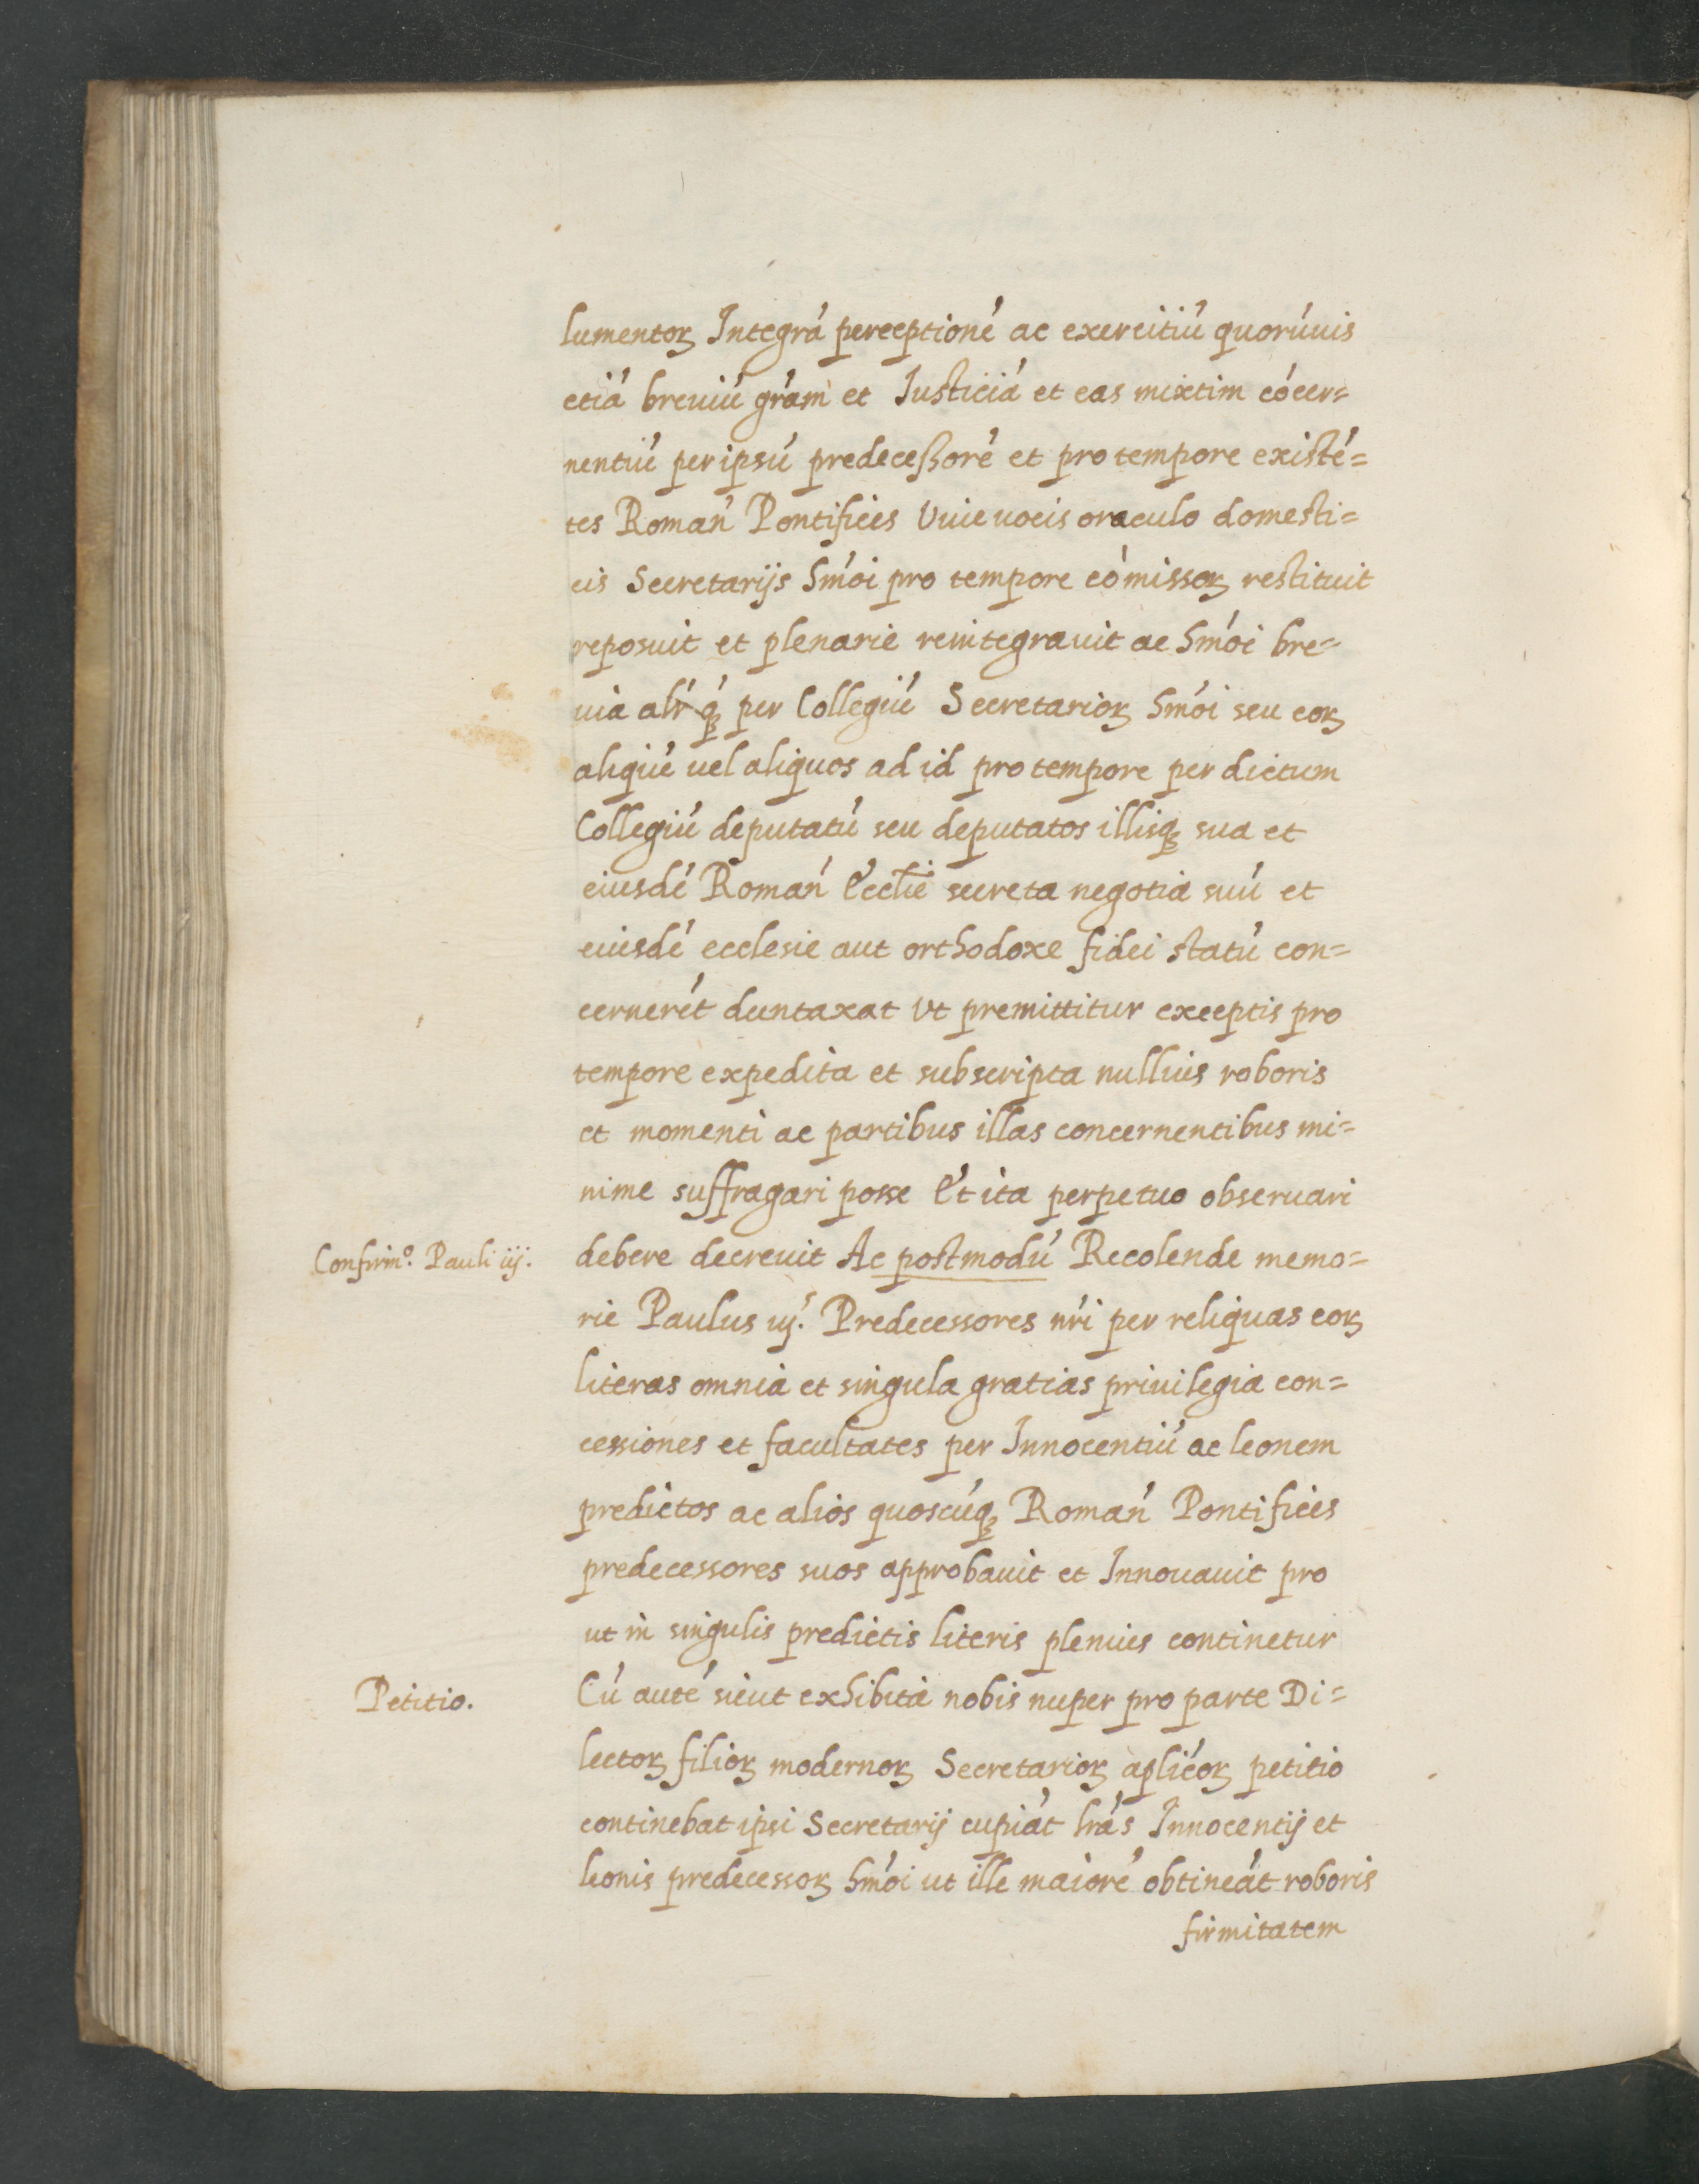 lumentoꝝ Integrá perceptioné ac exercitiú quorúuis
etiá breuiú grám et Iusticiá et eas mixtim cócer=
nentiú per ipsú predeceßoré et pro tempore existé=
tes Romań Pontifices Viue uocis oraculo domesti=
cis Secretarijs hmói pro tempore cómissoꝝ restituit
reposuit et plenarie reintegrauit ac hmói bre=
uia alr̃ q́ꝫ per Collegiú Secretarioꝝ hmói seu eoꝝ
aliqué uel aliquos ad id pro tempore per dictum
Collegiú deputatú seu deputatos illisqꝫ sua et
eiusdé Romań Ecclie secreta negotia suú et
eiusdé ecclesie aut orthodoxe fidei statú con=
cernerét duntaxat Vt premittitur exceptis pro
tempore expedita et subscripta nullius roboris
et momenti ac partibus illas concernentibus mi=
nime suffragari posse Et ita perpetuo obseruari
Confirm.º Pauli iij.
debere decreuit Ac postmodú Recolende memo=
rie Paulus iij.s Predecessores nŕi per reliquas eoꝝ
literas omnia et singula gratias priuilegia con=
cessiones et facultates per Innocentiú ac leonem
predictos ac alios quoscúqꝫ Romań Pontifices
predecessores suos approbauit et Innouauit pro
ut in singulis predictis literis plenius continetur
Petitio.
Cú auté sicut exhibita nobis nuper pro parte Di=
lectoꝝ filioꝝ modernoꝝ Secretarioꝝ aplićoꝝ petitio
continebat ipsi Secretarij cupiát lrás Innocentij et
leonis predecessoꝝ hmói ut ille maioré obtineát roboris
firmitatem